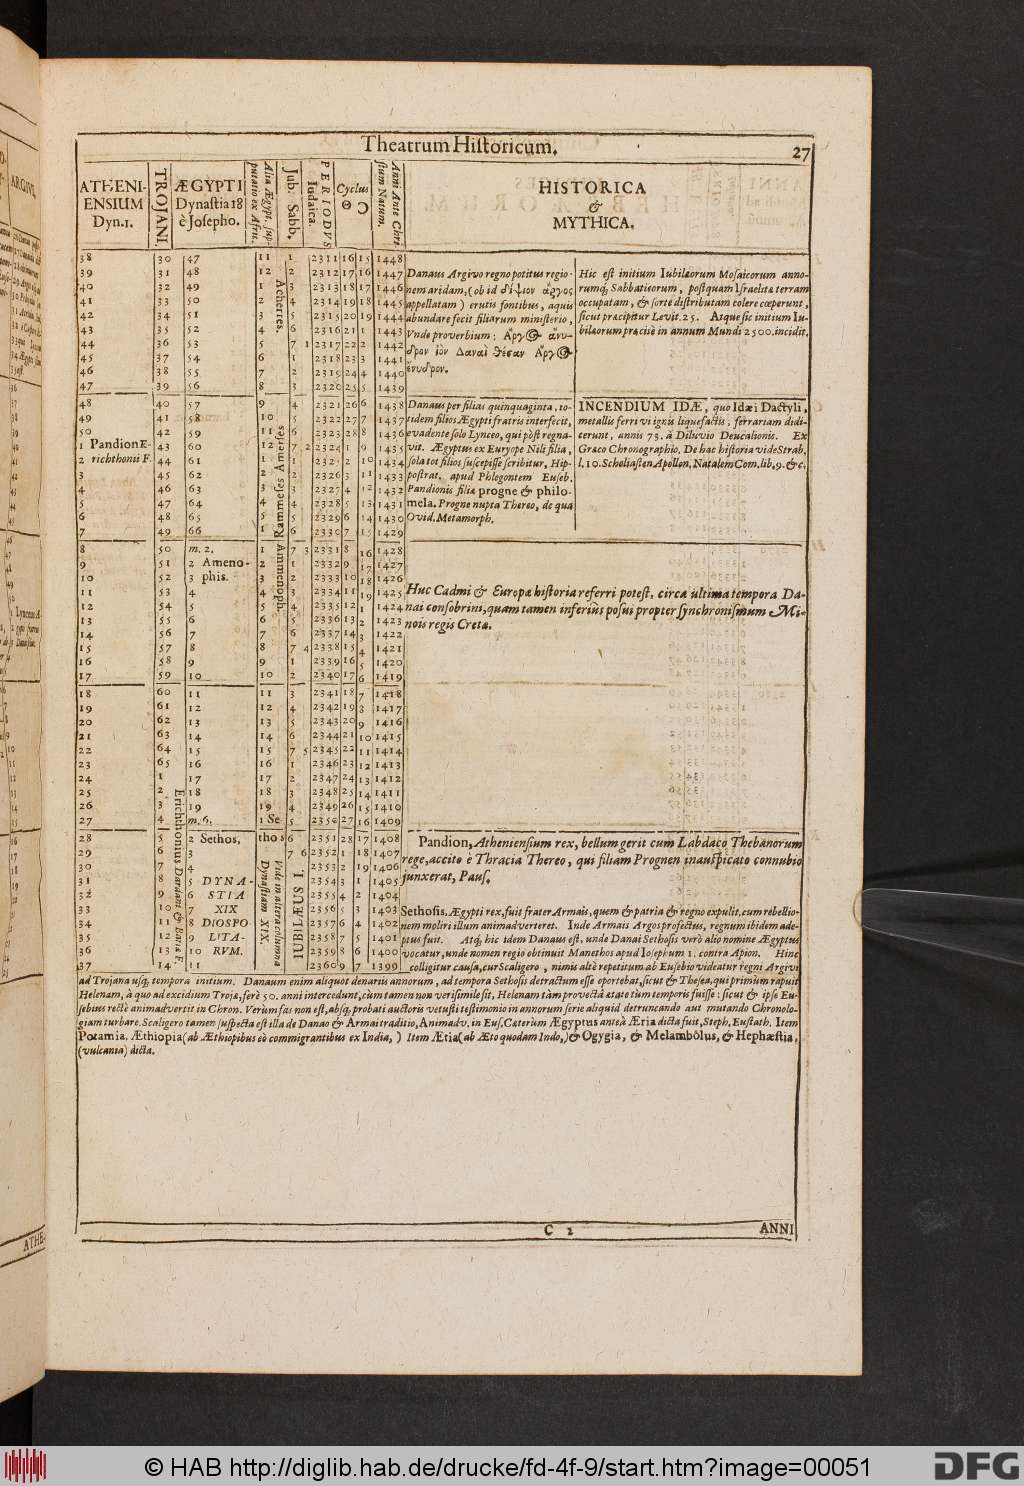 Theatrum Historicum.
27
ATHENI-
ENSIUM
Dyn.1.
TROJANI.
ÆGYPTI
Dynastia 18
è Josepho.
Alia Ægypt. sup-
putatio ex Afric.
Jub. Sabb.
PERIODVS
Iudaica.
Cyclus
☉ ☽
Anni Ante Chri-
stum Natum.
HISTORICA
&
MYTHICA.
38 30 47 11 1 2311 16 15 1448
39 31 48 12 2 2312 17 16 1447
40 32 49 1 3 2313 18 17 1446
41 33 50 2 4 2314 19 18 1445
42 34 51 3 5 2315 20 19 1444
43 35 52 4 6 2316 21 1 1443
44 36 53 5 7 1 2317 22 2 1442
45 37 54 6 1 2318 23 3 1441
46 38 55 7 2 2319 24 4 1440
47 39 56 8 3 2320 25 5 1439
Acherres.
Danaus Argivo regno potitus regio-
nem aridam, (ob id δίψιον ἄργος
appellatam) erutis fontibus, aquis
abundare fecit filiarum ministerio,
Vnde proverbium: Ἄργος ἄνυ-
δρον ἐὸν Δαναὶ θέσαν Ἄργος
ἔνυδρον.
Hic est initium Iubilæorum Mosaicorum anno-
rumq; Sabbaticorum, postquam Israelitæ terram
occupatam, & sorte distributam colere cœperunt,
sicut præcipitur Levit. 25. Atque sic initium Iu-
bilæorum præcisè in annum Mundi 2500. incidit.
48 40 57 9 4 2321 26 6 1438
49 41 58 10 5 2322 27 7 1437
50 42 59 11 6 2323 28 8 1436
1 Pandion E- 43 60 12 7 2 2324 1 9 1435
2 richthonii F. 44 61 1 1 2325 2 10 1434
3 45 62 2 2 2326 3 11 1433
4 46 63 3 3 2327 4 12 1432
5 47 64 4 4 2328 5 13 1431
6 48 65 5 5 2329 6 14 1430
7 49 66 1 6 2330 7 15 1429
Rammeses Ameses
Danaus per filias quinquaginta, to-
tidem filios Ægypti fratris interfecit,
evadente solo Lynceo, qui pòst regna-
vit. Ægyptus ex Euryope Nili filia,
sola tot filios suscepisse scribitur, Hip-
postrat. apud Phlegontem Euseb.
Pandionis filiæ progne & philo-
mela. Progne nupta Thereo, de qua
Ovid. Metamorph.
INCENDIUM IDÆ, quo Idæi Dactyli,
metallis ferri vi ignis liquefactis, ferrariam didi-
cerunt, annis 73. à Diluvio Deucalionis. Ex
Græco Chronographio. De hac historia vide Strab.
l. 10. Scholiasten Apollon, Natalem Com. lib. 9. &c.
8 50 m. 2. 1 7 3 2331 8 16 1428
9 51 2 Ameno- 2 1 2332 9 17 1427
10 52 3 phis. 3 2 2333 10 18 1426
11 53 4 4 3 2334 11 19 1425
12 54 5 5 4 2335 12 1 1424
13 55 6 6 5 2336 13 2 1423
14 56 7 7 6 2337 14 3 1422
15 57 8 8 7 4 2338 15 4 1421
16 58 9 9 1 2339 16 5 1420
17 59 10 10 2 2340 17 6 1419
Ammenoph.
Huc Cadmi & Europæ historia referri potest, circa ultima tempora Da-
nai consobrini, quam tamen inferiùs posui propter synchronismum Mi-
nois regis Cretæ.
18 60 11 11 3 2341 18 7 1418
19 61 12 12 4 2342 19 8 1417
20 62 13 13 5 2343 20 9 1416
21 63 14 14 6 2344 21 10 1415
22 64 15 15 7 5 2345 22 11 1414
23 65 16 16 1 2346 23 12 1413
24 1 17 17 2 2347 24 13 1412
25 2 18 18 3 2348 25 14 1411
26 3 19 19 4 2349 26 15 1410
27 4 m. 6. 1 Se 5 2350 27 16 1409
28 5 2 Sethos, thos 6 2351 28 17 1408
29 6 3 7 6 2352 1 18 1407
30 7 4 2353 2 19 1406
31 8 5 DYNA- 2354 3 1 1405
32 9 6 STIA 2355 4 2 1404
33 10 7 XIX 2356 5 3 1403
34 11 8 DIOSPO- 2357 6 4 1402
35 12 9 LITA- 2358 7 5 1401
36 13 10 RVM. 2359 8 6 1400
37 14 11 2360 9 7 1399
Erichthonius Dardani & Batiæ F.
Vide in altera columna
Dynastiam XIX.
IUBILÆUS I.
Pandion, Atheniensium rex, bellum gerit cum Labdaco Thebanorum
rege, accito è Thracia Thereo, qui filiam Prognen inauspicato connubio
junxerat, Paus.
Sethosis, Ægypti rex, fuit frater Armais, quem & patria & regno expulit, cum rebellio-
nem moliri illum animadverteret. Inde Armais Argos profectus, regnum ibidem ade-
ptus fuit. Atq; hic idem Danaus est, unde Danai Sethosis verò alio nomine Ægyptus
vocatur, unde nomen regio obtinuit Manethos apud Iosephum 1. contra Apion. Hinc
colligitur causa, cur Scaligero, nimis altè repetitum ab Eusebio videatur regni Argivi
ad Trojana usq; tempora initium. Danaum enim aliquot denariis annorum, ad tempora Sethosis detractum esse oportebat, sicut & Thesea, qui primum rapuit
Helenam, à quo ad excidium Trojæ, ferè 50. anni intercedunt, cùm tamen non verisimile sit, Helenam tàm provectâ ætate tùm temporis fuisse: sicut & ipse Eu-
sebius rectè animadvertit in Chron. Verùm fas non est, absq; probati auctoris vetusti testimonio in annorum serie aliquid detruncando aut mutando Chronolo-
giam turbare. Scaligero tamen suspecta est illa de Danao & Armai traditio, Animadv. in Eus. Caterùm Ægyptus anteà Æria dicta fuit, Steph. Eustath. Item
Potamia. Æthiopia (ab Æthiopibus eò commigrantibus ex India,) Item Ætia (ab Æto quodam Indo,) & Ogygia, & Melambôlus, & Hephæstia,
(vulcania) dicta.
C 2
ANNI
ATHE-
© HAB http://diglib.hab.de/drucke/fd-4f-9/start.htm?image=00051
DFG